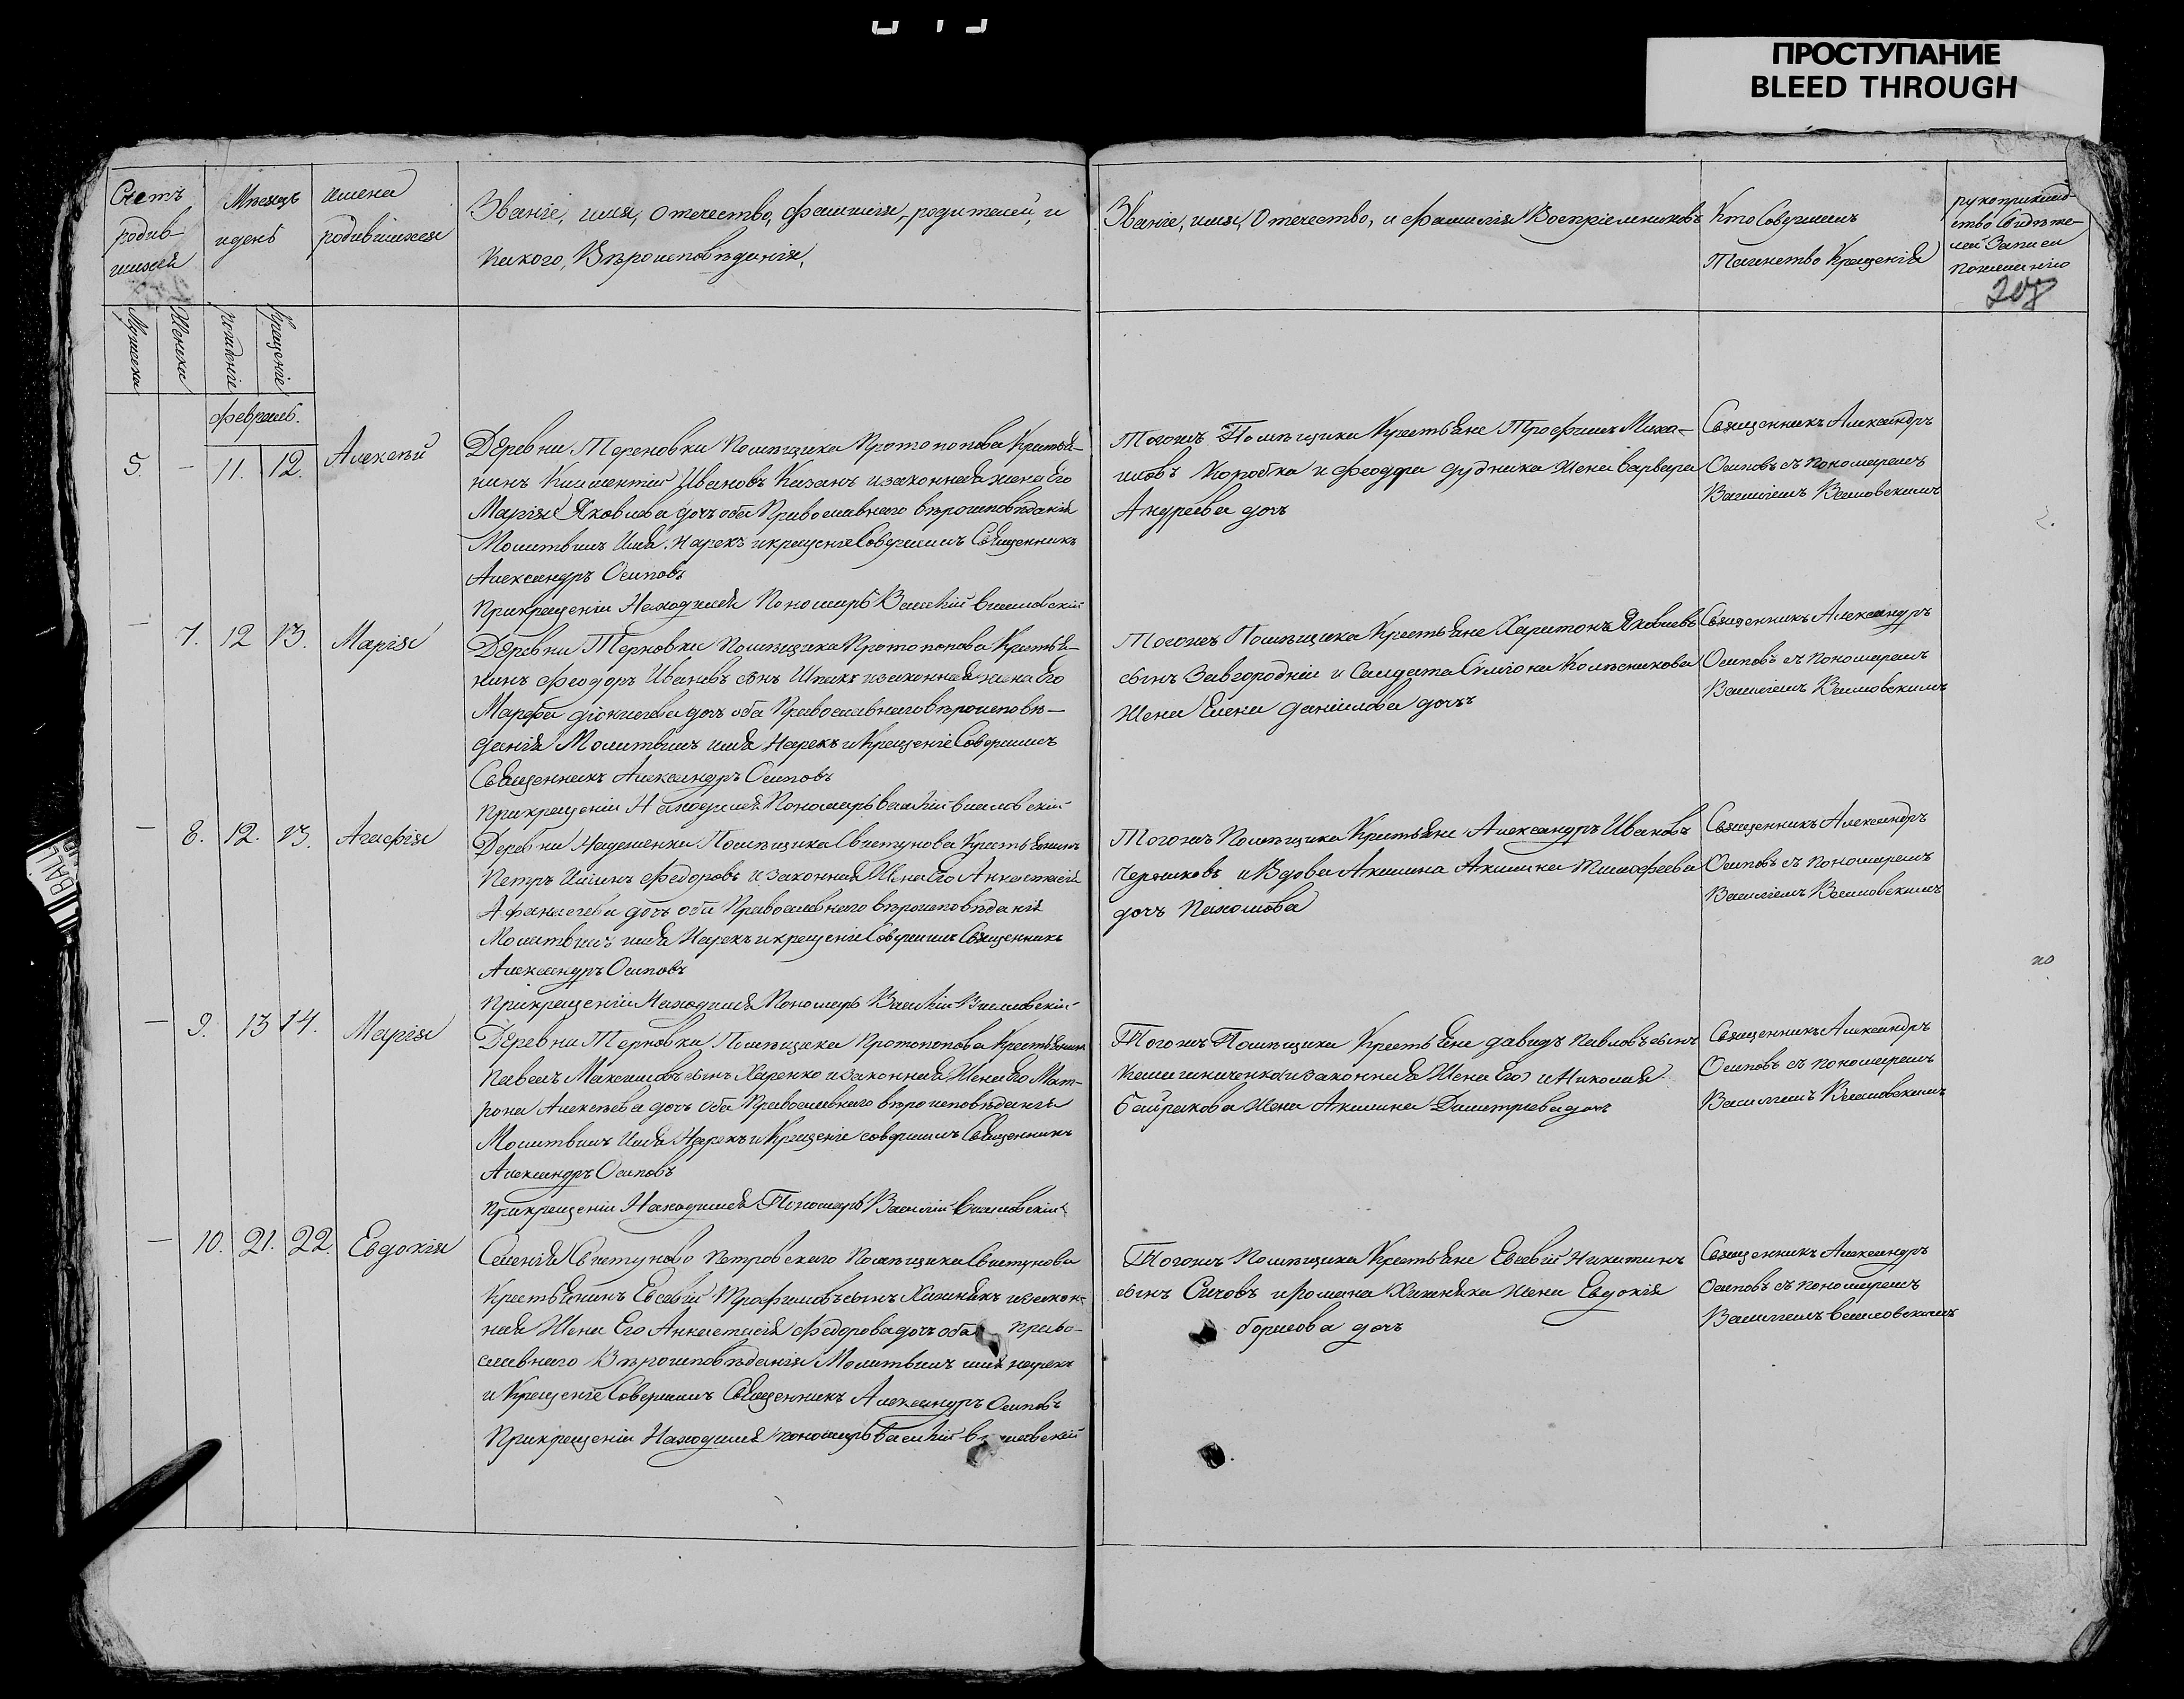 ПРОСТУПАНИЕ
BLEED THROUGH
Счетъ родив-шихся
Мѣсяцъ и день
имена родившихся
Званіе, имя, отечество, фамилія, родителей, и
Какого, Вѣроисповѣданія,
Званіе, имя, отечество, и фамилія Воспріемниковъ
Кто Совершилъ
Таинство Крещенія
рукоприклад-
ство Свидѣте-
лей Записи
по желанію
208
Мужеска
Женска
рожденіе
Крещеніе
февраль.
5. – 11. 12. Алексѣй
Деревни Терновки Помѣщика Протопопова Крестья-
нинъ Климентій Ивановъ Казанъ и законная жена Его
Марія Яковлева дочь оба Православнаго вѣроисповѣданія
Молитвилъ Имя Нарекъ и крещеніе Совершилъ Священникъ
Александръ Осиповъ
При крещеніи Находился Пономарь Василій
Тогожъ Помѣщика Крестьяне Трофимъ Миха-
иловъ Коробка и Феодора Дудника Жена Варвара
Андреева дочь
Священникъ Александръ
Осиповъ съ пономаремъ
Василіемъ
– 7. 12 13. Марія
Деревни Терновки Помѣщика Протопопова Крестья-
нинъ Феодоръ Ивановъ сынъ Шпакъ и законная жена Его
Марфа діонисева дочь оба Православнаго вѣроисповѣ-
данія Молитвилъ имя Нарекъ и Крещеніе Совершилъ
Священникъ Александръ Осиповъ
При крещеніи Находился Пономарь Василій
Тогожъ Помѣщика Крестьяне Харитонъ Яковлевъ
сынъ Завгородній и Салдата Симіона Колѣсникова
Жена Елена даніилова дочь
Священникъ Александръ
Осиповъ съ пономаремъ
Василіемъ
– 8. 12. 13. Агафія
Деревни Надеженки Помѣщика Свистунова Крестьянинъ
Петръ Ильинъ Федоровъ и Законная Жена Его Анастасія
Афанасева дочь оба Православнаго вѣроисповѣданія
Молитвилъ имя Нарекъ и крещеніе Совершилъ Священникъ
Александръ Осиповъ
При крещеніи Находился Пономарь Василій
Тогожъ Помѣщика Крестьяне Александръ Ивановъ
и Вдова Акилина Акилина Тимофеева
дочь Пахомова
Священникъ Александръ
Осиповъ съ пономаремъ
Василіемъ
– 9. 13 14. Марія
Деревни Терновки Помѣщика Протопопова Крестьянинъ
Павелъ Максимовъ сынъ Харенко и законная Жена Его Мат-
рона Алексѣева дочь Оба Православнаго вѣроисповѣданія
Молитвилъ Имя Нарекъ и Крещеніе совершилъ Священникъ
Александръ Осиповъ
При крещеніи Находился Пономарь Василій
Тогожъ Помѣщика Крестьяне давидъ Павловъ сынъ
и законная Жена Его и Николая
Байракова Жена Акилина Дмитріева дочь
Священникъ Александръ
Осиповъ съ пономаремъ
Василіемъ
– 10. 21. 22. Евдокія
Селенія Свистуново Петровскаго Помѣщика Свистунова
Крестьянинъ Евсевій Трофимовъ сынъ Хижнякъ и закон-
ная Жена Его Анастасія Федорова дочь оба Право-
славнаго Вѣроисповѣданія Молитвилъ имя нарекъ
и Крещеніе Совершилъ Священникъ Александръ Осиповъ
При крещеніи Находился пономарь Василій
Тогожъ Помѣщика Крестьяне Евсевій Никитинъ
сынъ Сичовъ и Романа Хижняка Жена Евдокія
борисова дочь
Священникъ Александръ
Осиповъ съ пономаремъ
Василіемъ